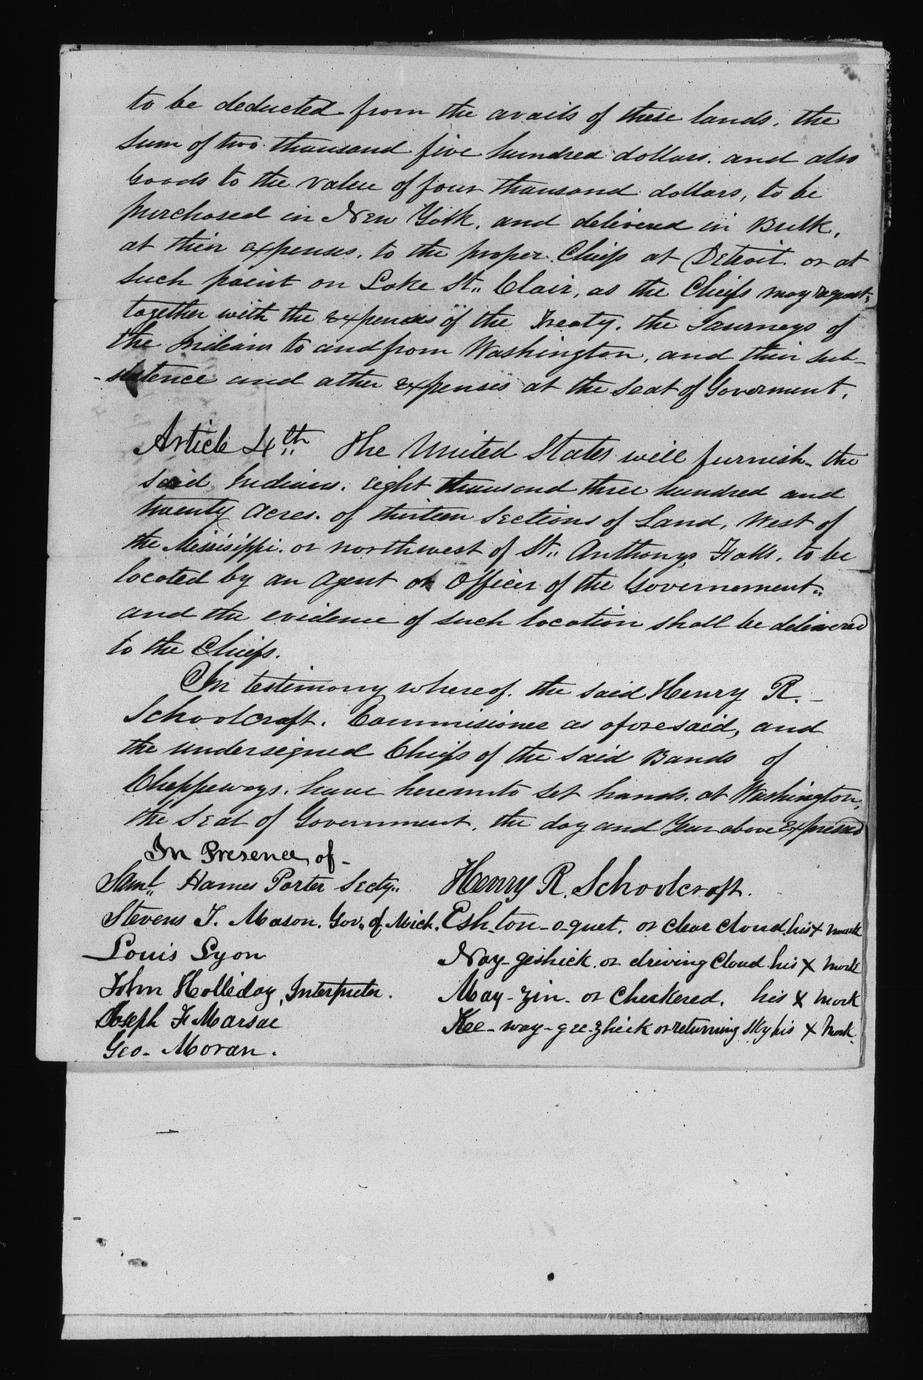 to be deducted from the avails of these lands, the
sum of two thousand five hundred dollars, and also
Goods to the value of four thousand dollars, to be
purchased in New York, and delivered in Bulk,
at their expenses, to the proper Chiefs at Detroit or at
such point on Lake St,, Clair, as the Chiefs may request;
together with the expences of the Treaty, the Journeys of
the Indians to and from Washington, and their sub-
-sistence and other expenses at the seat of Goverment.
Article 4th,, The United States will furnish the
said Indians, eight thousand three hundred and
twenty acres, of thirteen sections of Land, West of
the Missisippi, or northwest of St,, Anthonys Falls, to be
located by an Agent or Officer of the Governement,,
and the evidence of such location shall be delivered
to the Chiefs.
In testimony whereof, the said Henry R. -
Schoolcraft, Commissioner as aforesaid, and
the undersigned Chiefs of the said Bands of
Cheppeways, have hereunto set hands, at Washington,
the Seat of Government, the day and Year above expressed
In Presence of -
Saml,, Hames Porter Secty,,
Stevens T. Mason, Gov,, of Mich.
Louis Lyon
John Holliday, Interpreter.
Joseph F Marsac
Geo- Moran.
Henry R. Schoolcraft.
Esh-ton-oquet, or Clear Cloud, his X mark
Nay-geshick, or driving Cloud his X mark
May-zin- or Checkered, his X mark
Kee-way-gee-zhick or returning Sky his X mark.